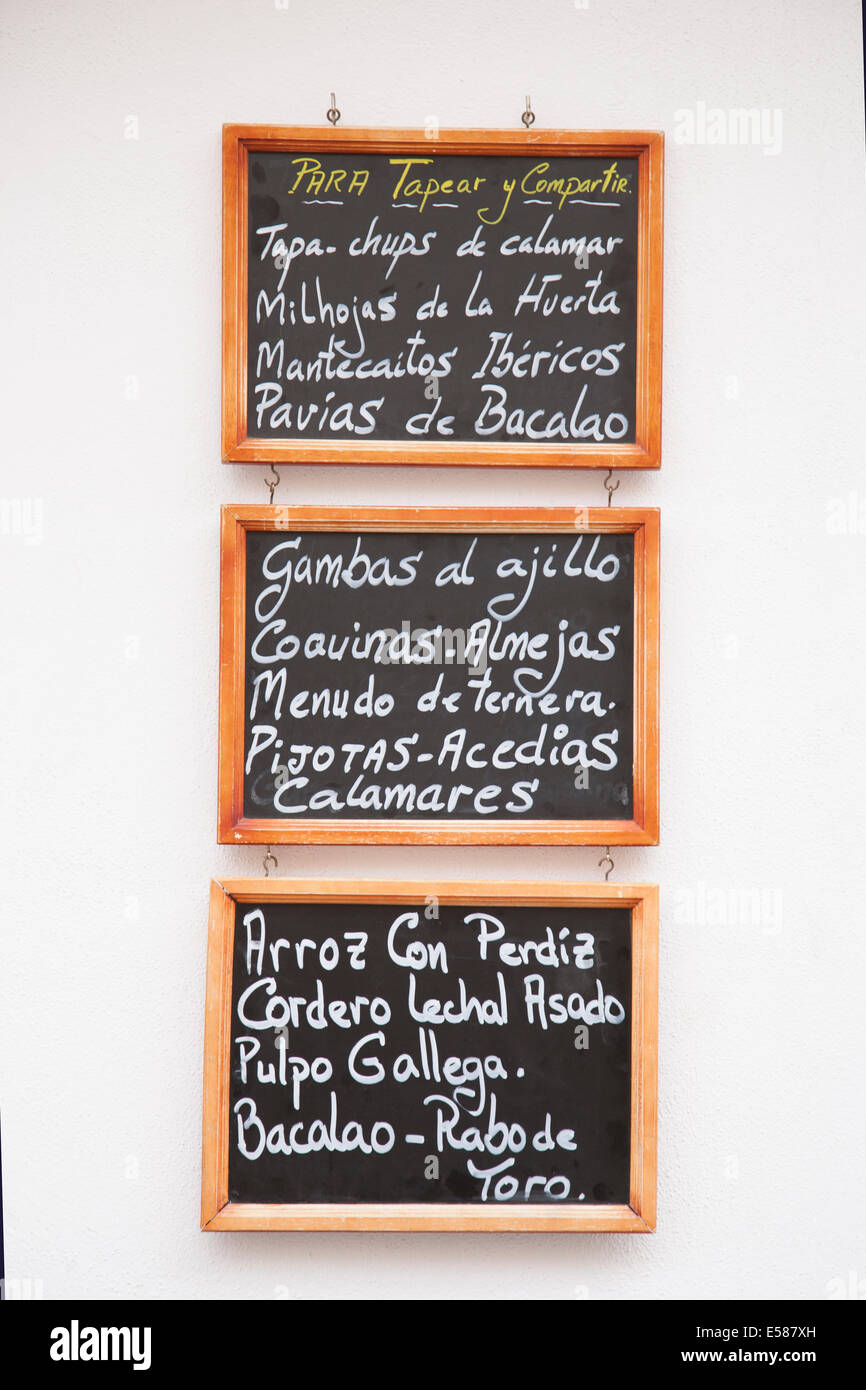 PARA Tapear y Compartir.
Tapa-chups de calamar
Milhojas de la Huerta
Mantecaitos Ibéricos
Pavías de Bacalao
Gambas al ajillo
Coquinas-Almejas
Menudo de ternera.
PIJOTAS-Acedias
Calamares
Arroz Con Perdíz
Cordero Lechal Asado
Pulpo Gallega.
Bacalao-Rabo de
Toro.
alamy
Image ID: E587XH
www.alamy.com